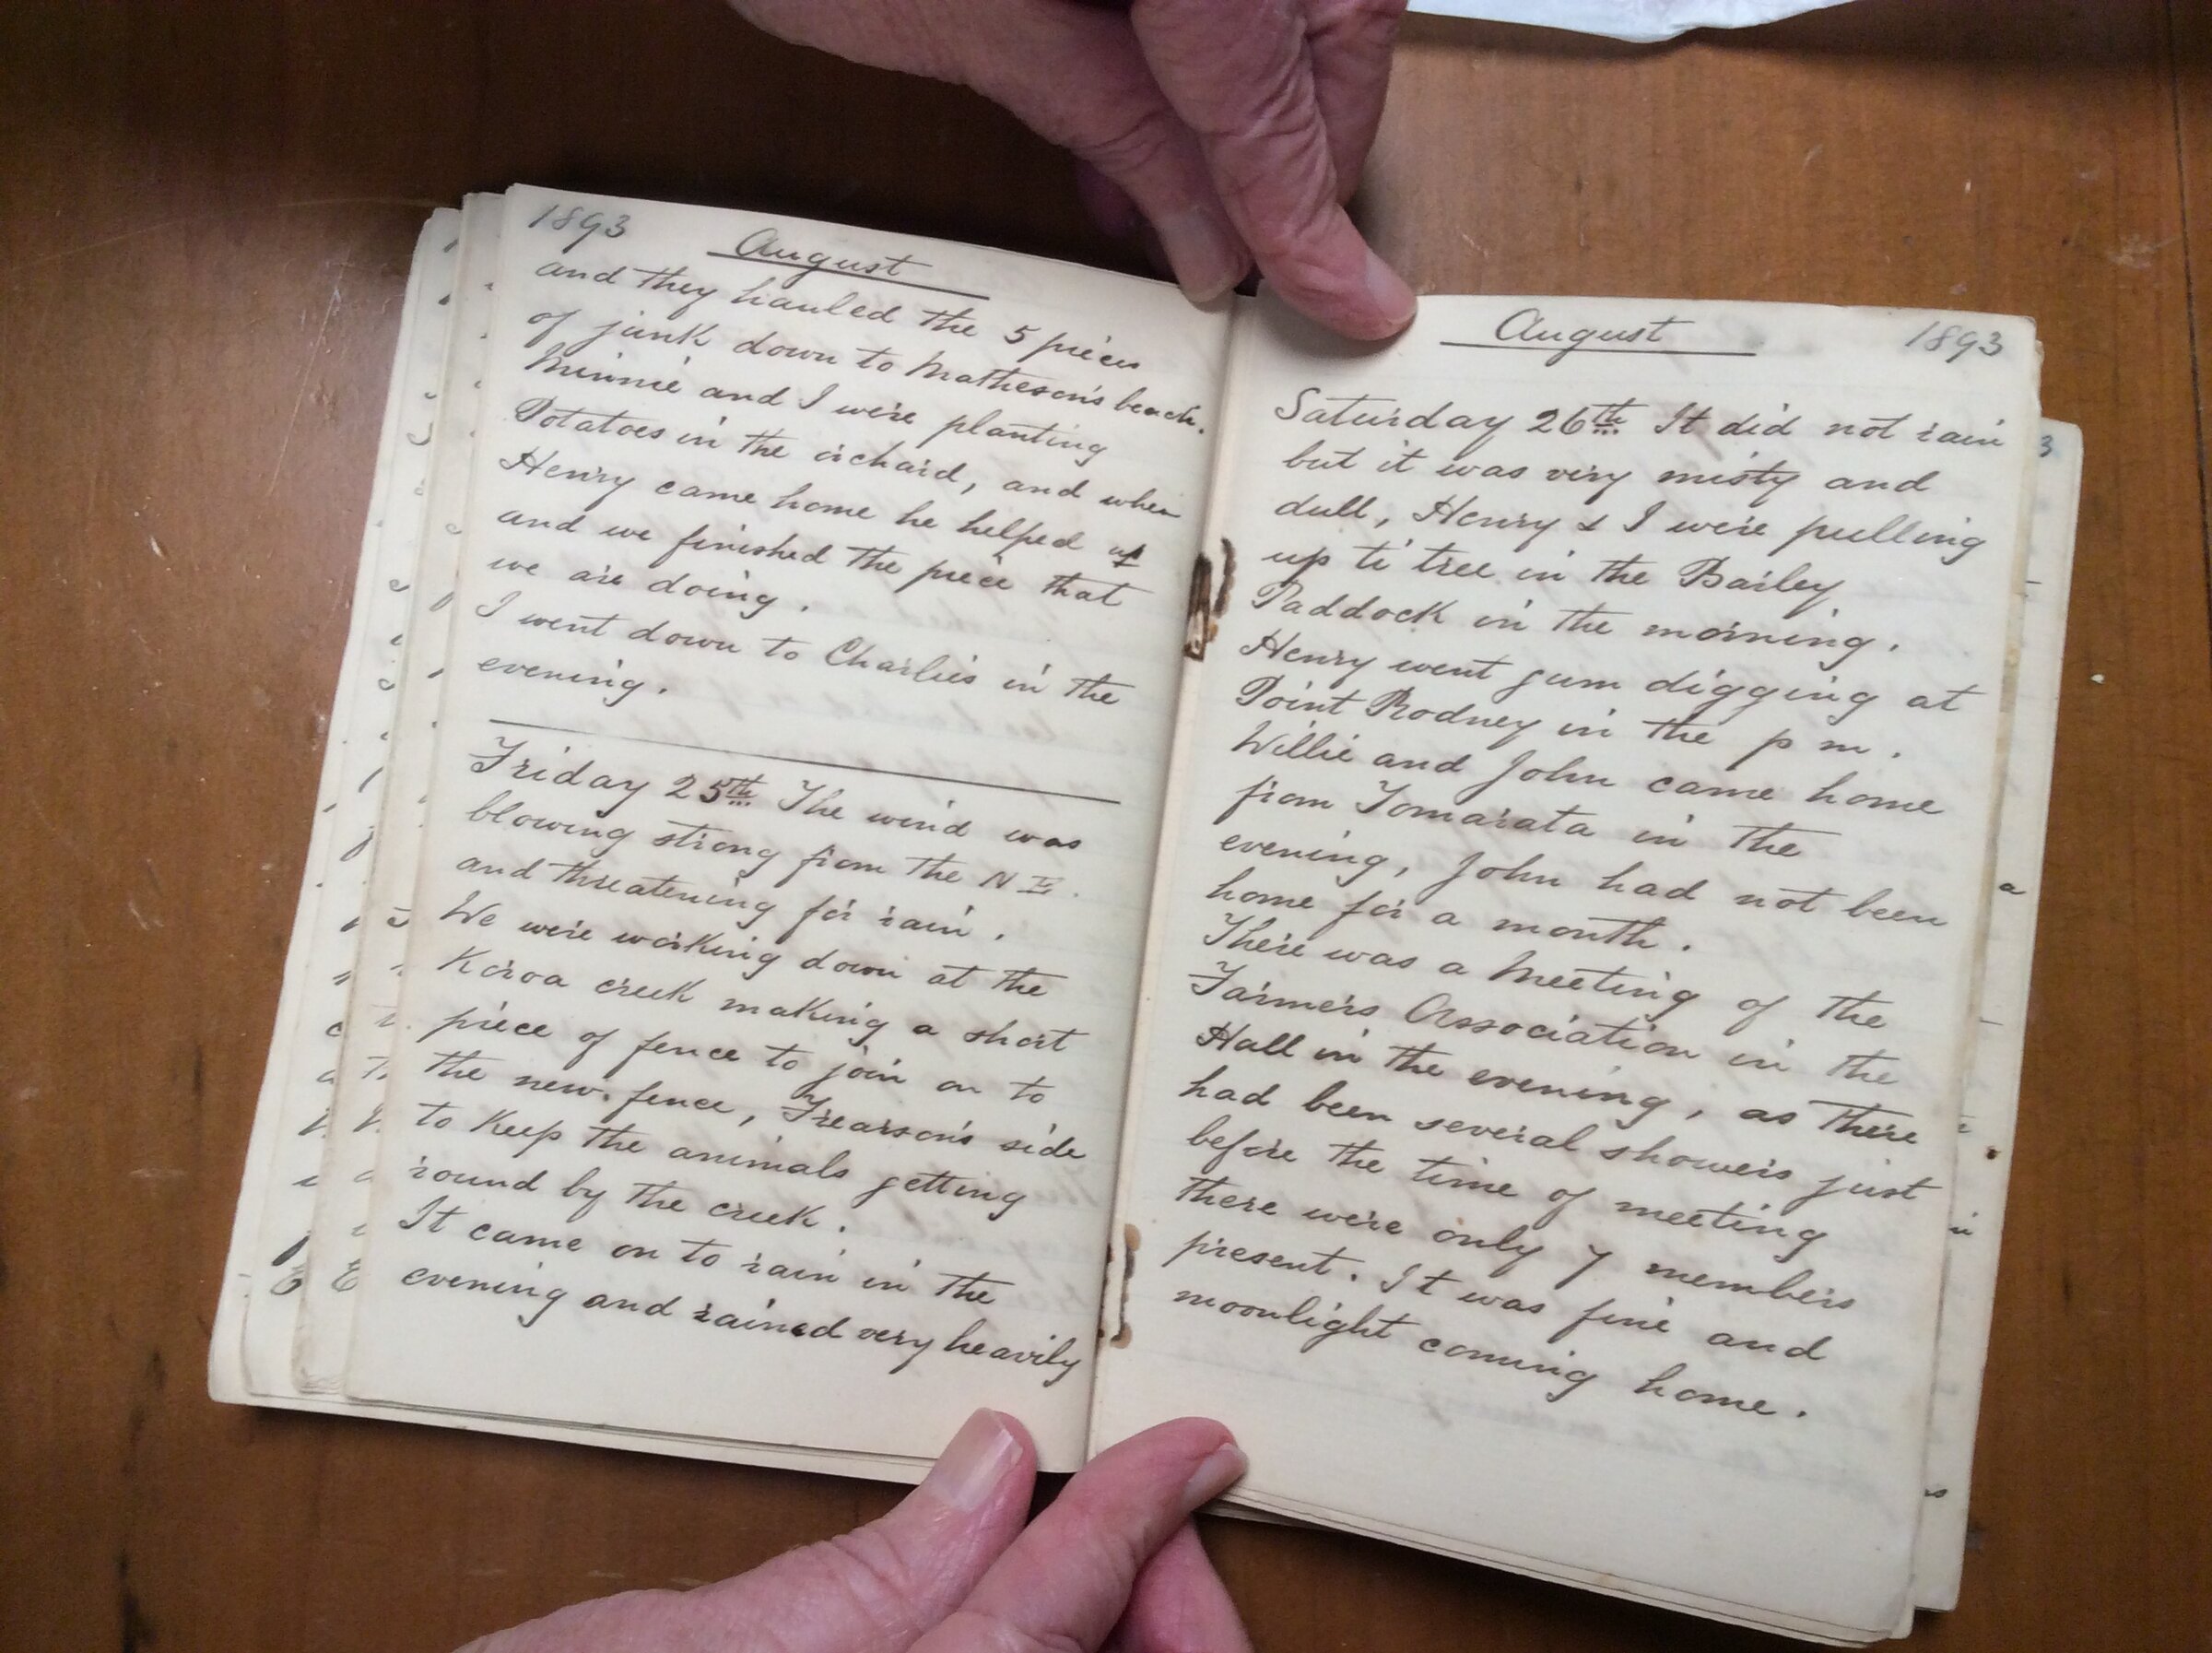 1893
August
and they hauled the 5 pieces
of junk down to Matheson's beach.
Minnie and I were planting
Potatoes in the orchard, and when
Henry came home he helped us
and we finished the piece that
we are doing.
I went down to Charlie's in the
evening.
Friday 25th The wind was
blowing strong from the N E.
and threatening for rain.
We were working down at the
Koroa creek making a short
piece of fence to join on to
the new fence, Frearson's side
to Keep the animals getting
round by the creek.
It came on to rain in the
evening and rained very heavily
August
1893
Saturday 26th It did not rain
but it was very misty and
dull, Henry & I were pulling
up ti tree in the Barley
Paddock in the morning.
Henry went gum digging at
Point Rodney in the p m.
Willie and John came home
from Tomarata in the
evening, John had not been
home for a month.
There was a Meeting of the
Farmers Association in the
Hall in the evening, as there
had been several showers just
before the time of meeting
there were only 7 members
present. It was fine and
moonlight coming home.